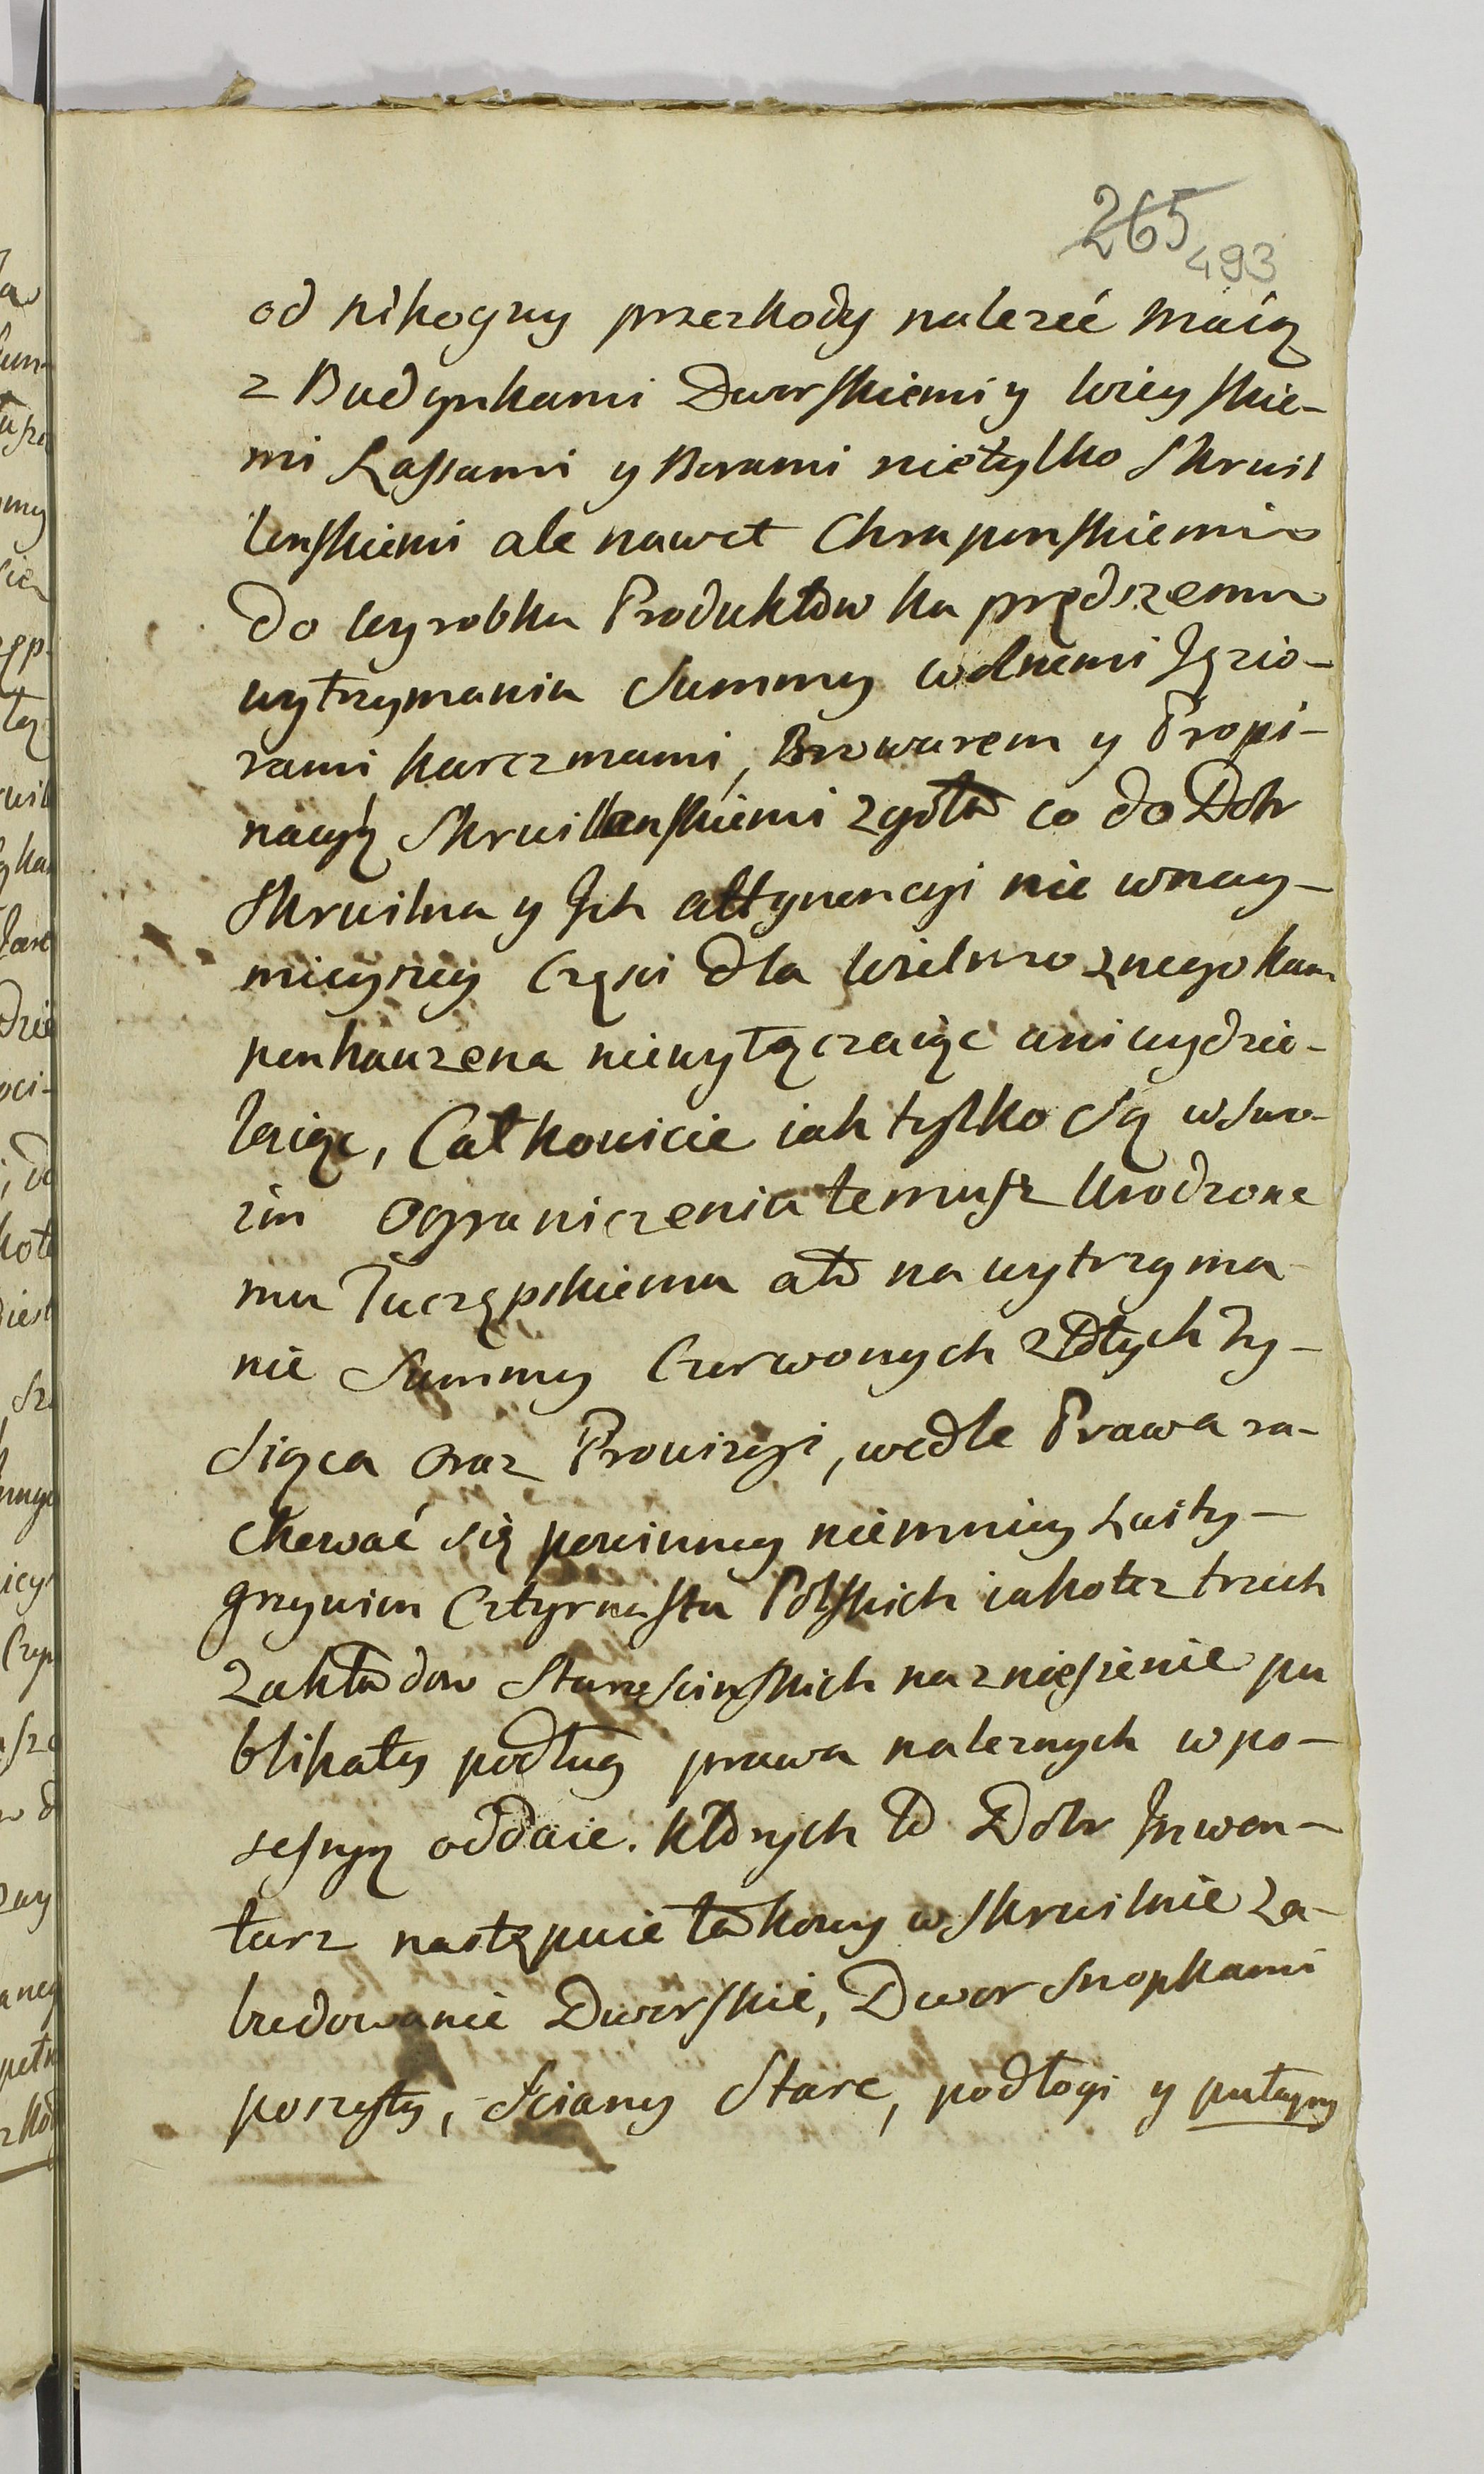 265
493
od nikogzy przezkody nalezeć maią
z Budynkami Dworskiemi y wieyskie-
mi Lassami y Borami nietylko Skruil
lenskiemi ale nawet Chraponskiemi
do wyrobku Produktow ku prędszemu
wytrzymaniu Summy wolnemi Jezio-
rami, karczmami, Browarem y Propi-
nacyą Skruillenskiemi zgoła co do Dobr
Skruilna y Ich attynencyi nie wnay-
mieyszey Części dla Wielmoznego kam
penhauzena niewyłączaiąc ani wydzie-
laiąc, Całkowicie iak tylko są wswo-
im Ograniczeniu temusz Urodzone
mu Tuczępskiemu ato na wytrzyma
nie Summy Czerwonych złotych Ty-
siąca oraz Prowizyi, wedle Prawa ra-
chować się powinney niemniey Lasty-
grzywien Cztyrnastu Polskich iakotez trzech
Zakładow Starościnskich na zniesienie pu
blikaty podług prawa naleznych wpo-
sesyyą oddaie. których to Dobr Inwen-
tarz następuie takowy w Skruilnie Za-
budowanie Dworskie, Dwor Snopkami
poszyty, Sciany Stare, podłogi y pułapy